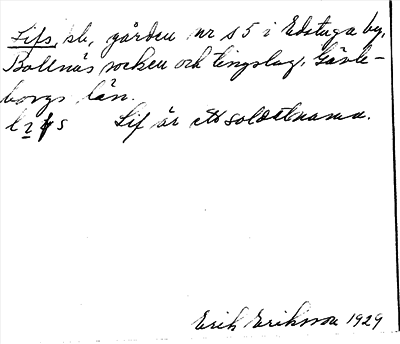 Lifs, sb, gården nr 5 i Edstuga by,
Bollnäs socken och tingslag, Gävle-
borgs län.
Lif är ett soldatnamn.
Erik Eriksson 1929